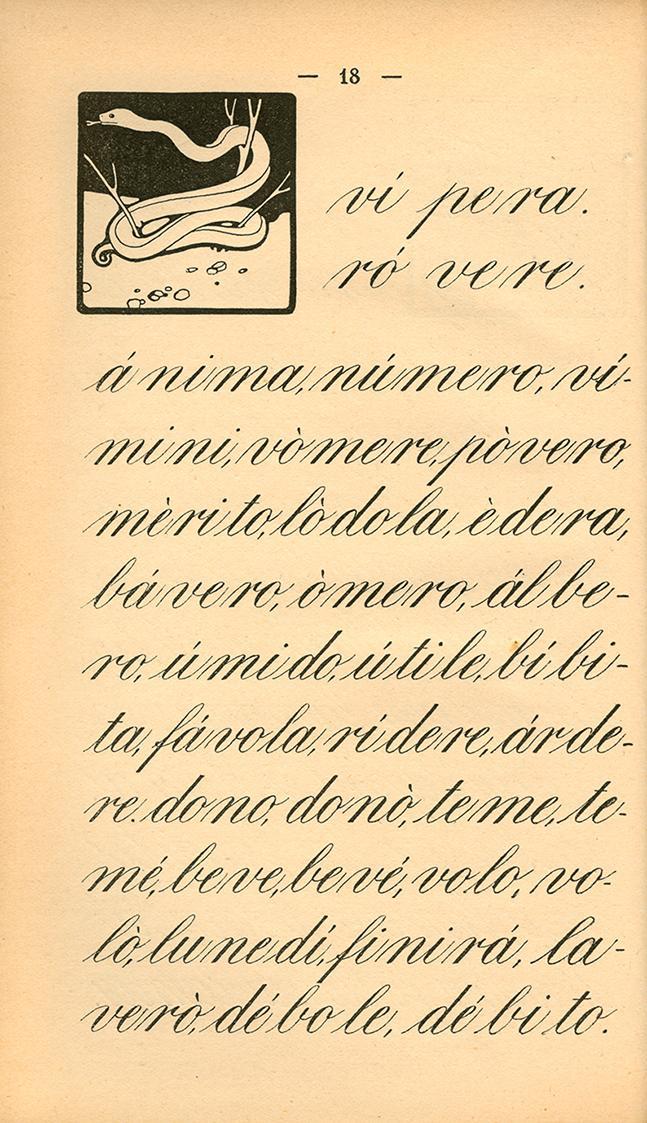 — 18 —
ví pe ra.
ró ve re.
á ni ma, nú me ro, ví-
mi ni, vò me re, pò ve ro,
mè ri to, lò do la, è de ra,
bá ve ro, ò me ro, ál be-
ro, ú mi do, ú ti le, bí bi-
ta, fá vo la, rí de re, ár de-
re. do no, do nò, te me, te-
mé, be ve, be vé, vo lo, vo-
lò, lu ne dí, fi ni rá, la-
ve rò, dé bo le, dé bi to.